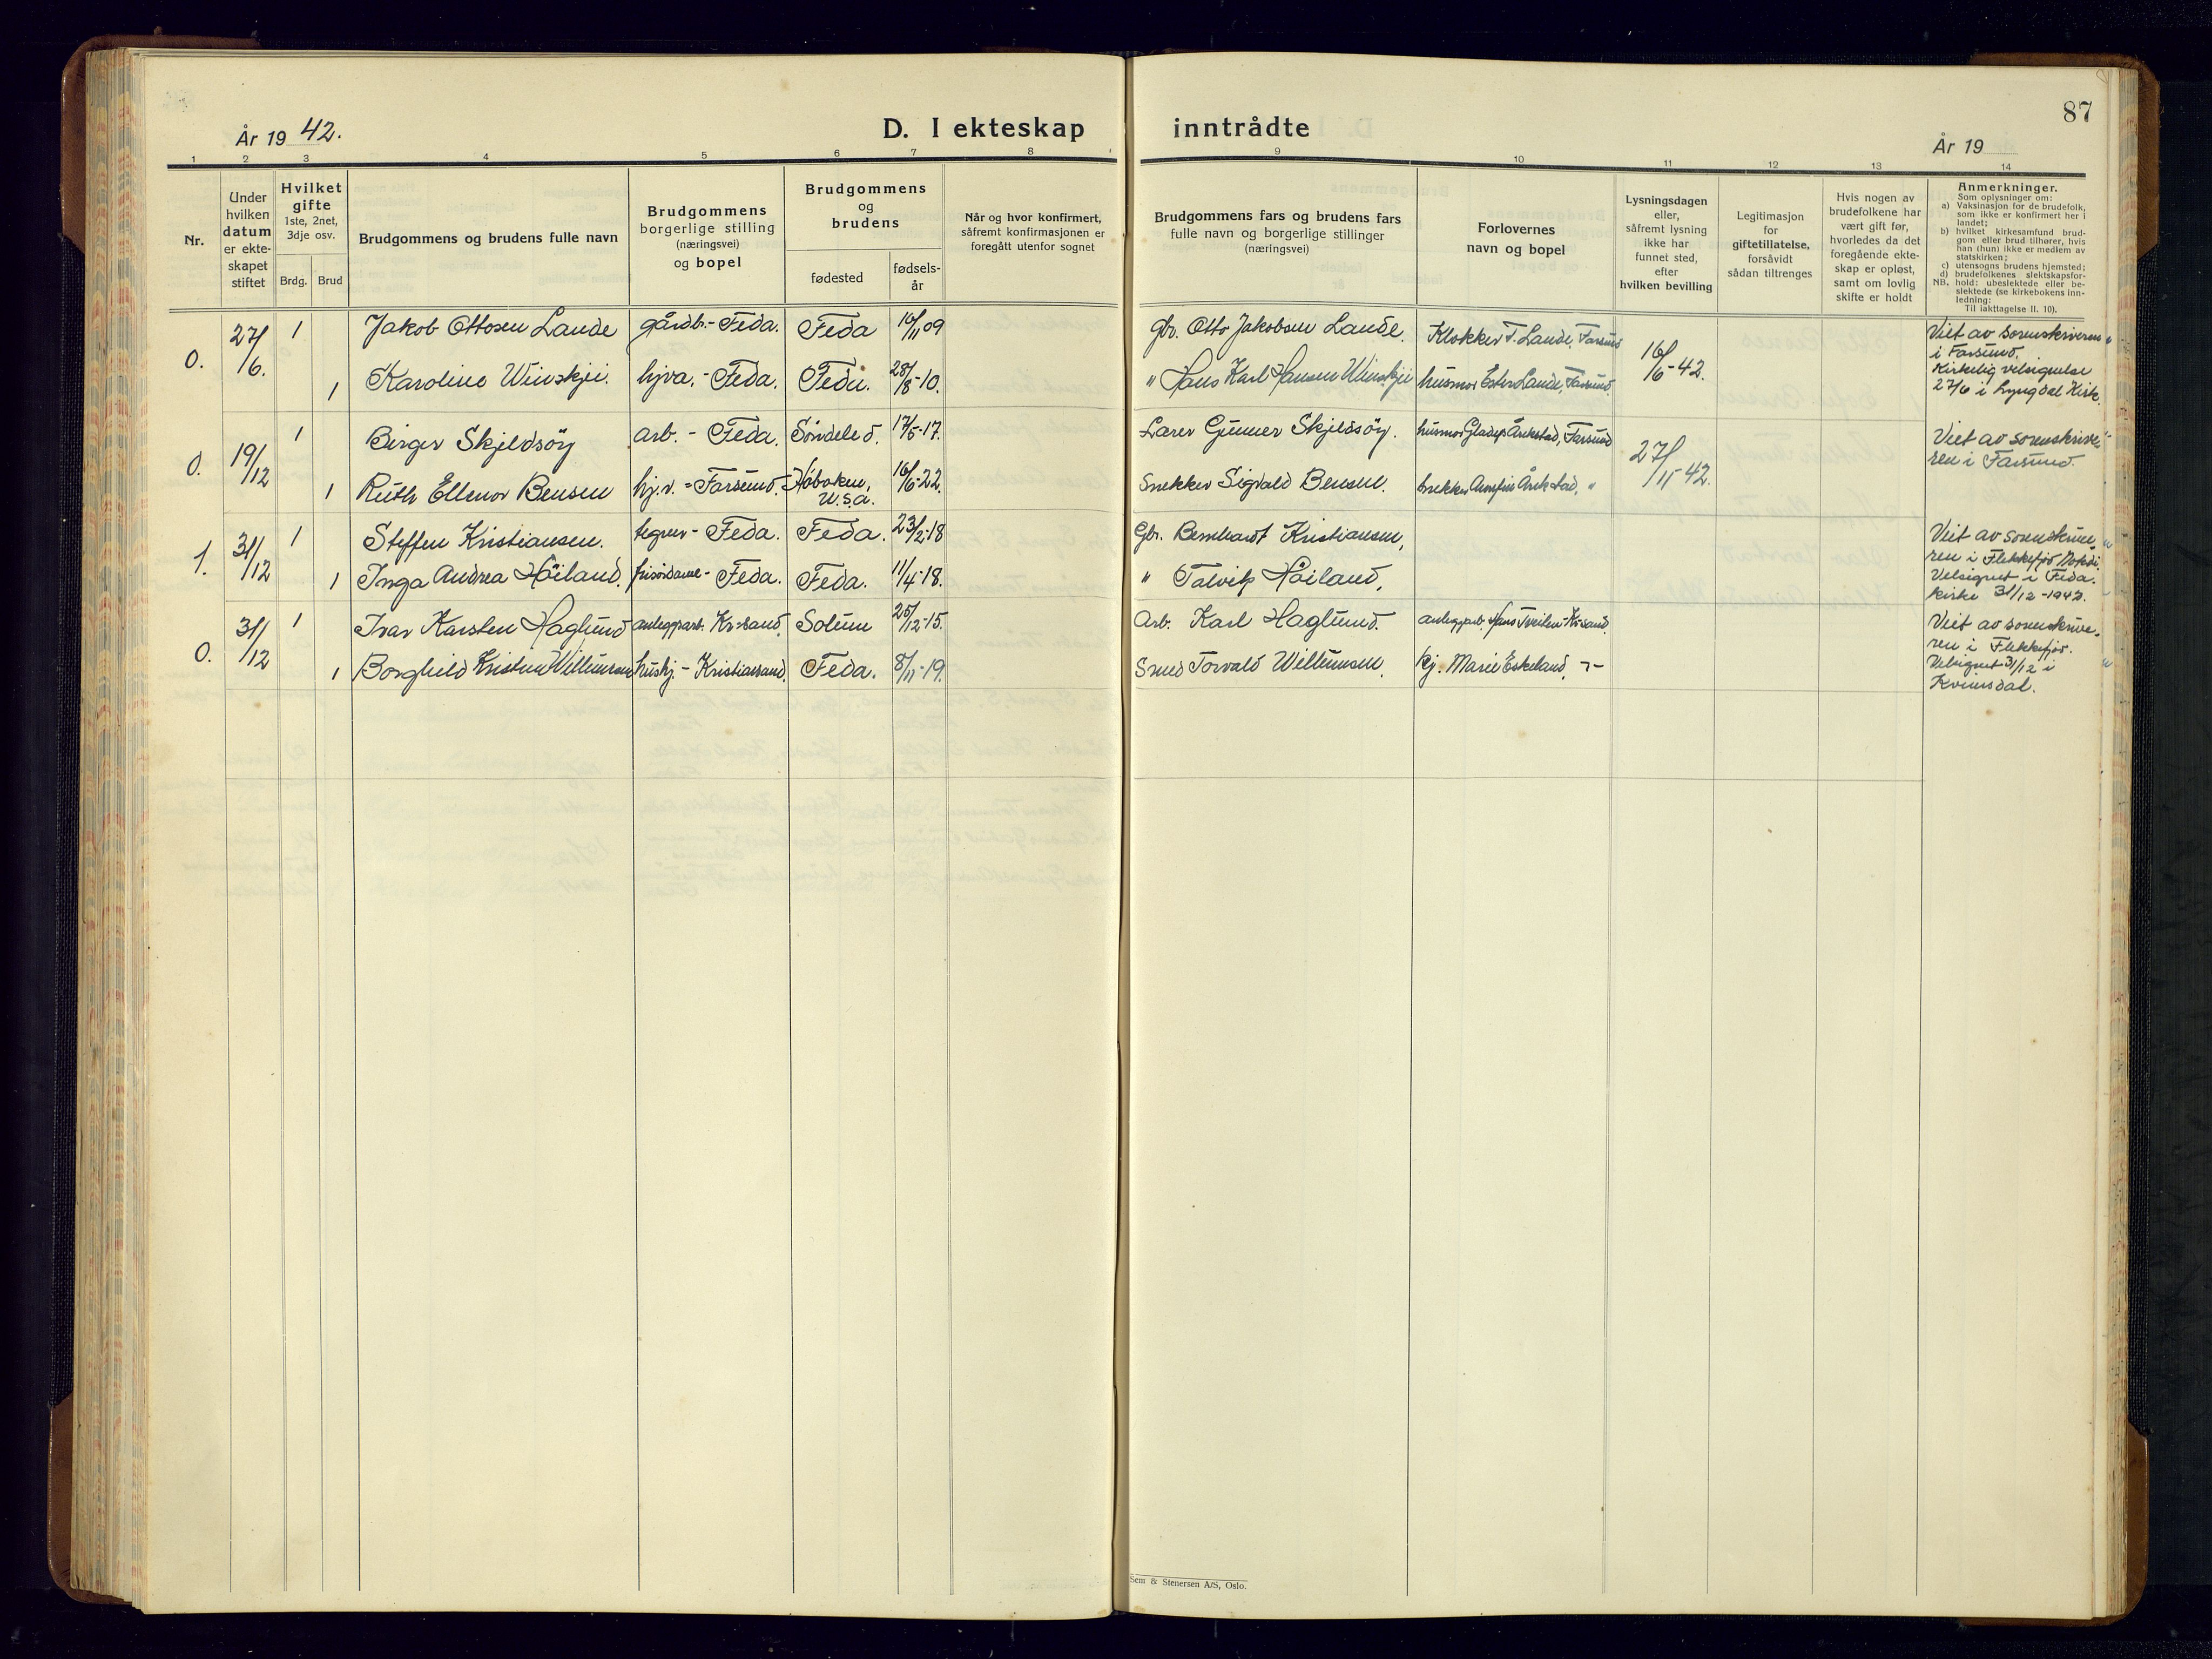 År 19 42.
D. I ekteskap inntrådte
87
År 19
1 2 3 4 5 6 7 8 9 10 11 12 13 14
Nr.
Under
hvilken
datum
er ekte-
skapet
stiftet
Hvilket
gifte
1ste, 2net,
3dje osv.
Brdg. Brud
Brudgommens og brudens fulle navn
Brudgommens
borgerlige stilling
(næringsvei)
og bopel
Brudgommens
og
brudens
fødested
fødsels-
år
Når og hvor konfirmert,
såfremt konfirmasjonen er
foregått utenfor sognet
Brudgommens fars og brudens fars
fulle navn og borgerlige stillinger
(næringsvei)
Forlovernes
navn og bopel
Lysningsdagen
eller,
såfremt lysning
ikke har
funnet sted,
efter
hvilken bevilling
Legitimasjon
for
giftetillatelse,
forsåvidt
sådan tiltrenges
Hvis nogen av
brudefolkene har
vært gift før,
hvorledes da det
foregående ekte-
skap er opløst,
samt om lovlig
skifte er holdt
Anmerkninger.
Som oplysninger om:
a) Vaksinasjon for de brudefolk,
som ikke er konfirmert her i
landet;
b) hvilket kirkesamfund brud-
gom eller brud tilhører, hvis
han (hun) ikke er medlem av
statskirken;
c) utensogns brudens hjemsted;
d) brudefolkenes slektskapsfor-
NB. hold: ubeslektede eller be-
slektede (se kirkebokens inn-
ledning:
Til iakttagelse II. 10).
0. 27/6. 1 Jakob Ottosen Lande gårdb.- Feda. Feda 10/11 09 gbr. Otto Jakobsen Lande. Klokker T. Lande, Farsund 16/6-42.
1 Karoline Winskjei. hjva.- Feda. Feda. 28/8-10. " Hans Karl Hansen Winskjei husmor Ester Lande, Farsund.
Viet av sorenskriveren
i Farsund.
Kirkelig velsignelse
27/6 i Lyngdal Kirke.
0. 19/12 1 Birger Skjeldsöy arb. - Feda. Söndeled. 17/5-17. Lærer Gunner Skjeldsöy. husmor Gladys Årikstad, Farsund 27/11-42.
1 Ruth Ellenor Bensen hj.v. - Farsund. Hoboken, U.S.A. 16/6-22. Snekker Sigvald Bensen. snekker Arnfin Årikstad, "
Viet av sorenskrive-
ren i Farsund.
1. 31/12 1 Steffen Kristiansen. tegner - Feda. Feda. 23/2-18 Gbr. Bernhardt Kristiansen,
1 Inga Andrea Höiland. frisördame - Feda. Feda. 11/4-18. " Tolvik Höiland,
Viet av sorenskrive-
ren i Flekkefjord
Velsignet i Feda
kirke 31/12-1942.
0. 31/12 1 Ivar Karsten Haglund anleggsarb. Kr.sand, Solum 25/12-15. Arb. Karl Haglund. anleggsarb. Hans Tveiten - Kr.sand.
1 Borghild Kristine Willumsen hushj. - Kristiansand. Feda. 8/11-19. Smed Torvald Willumsen. hj. Marie Eskeland, -"-
Viet av sorenskrive-
ren i Flekkefjor.
Velsignet 31/12 i
Kvinesdal.
Sem & Stenersen A/S, Oslo.